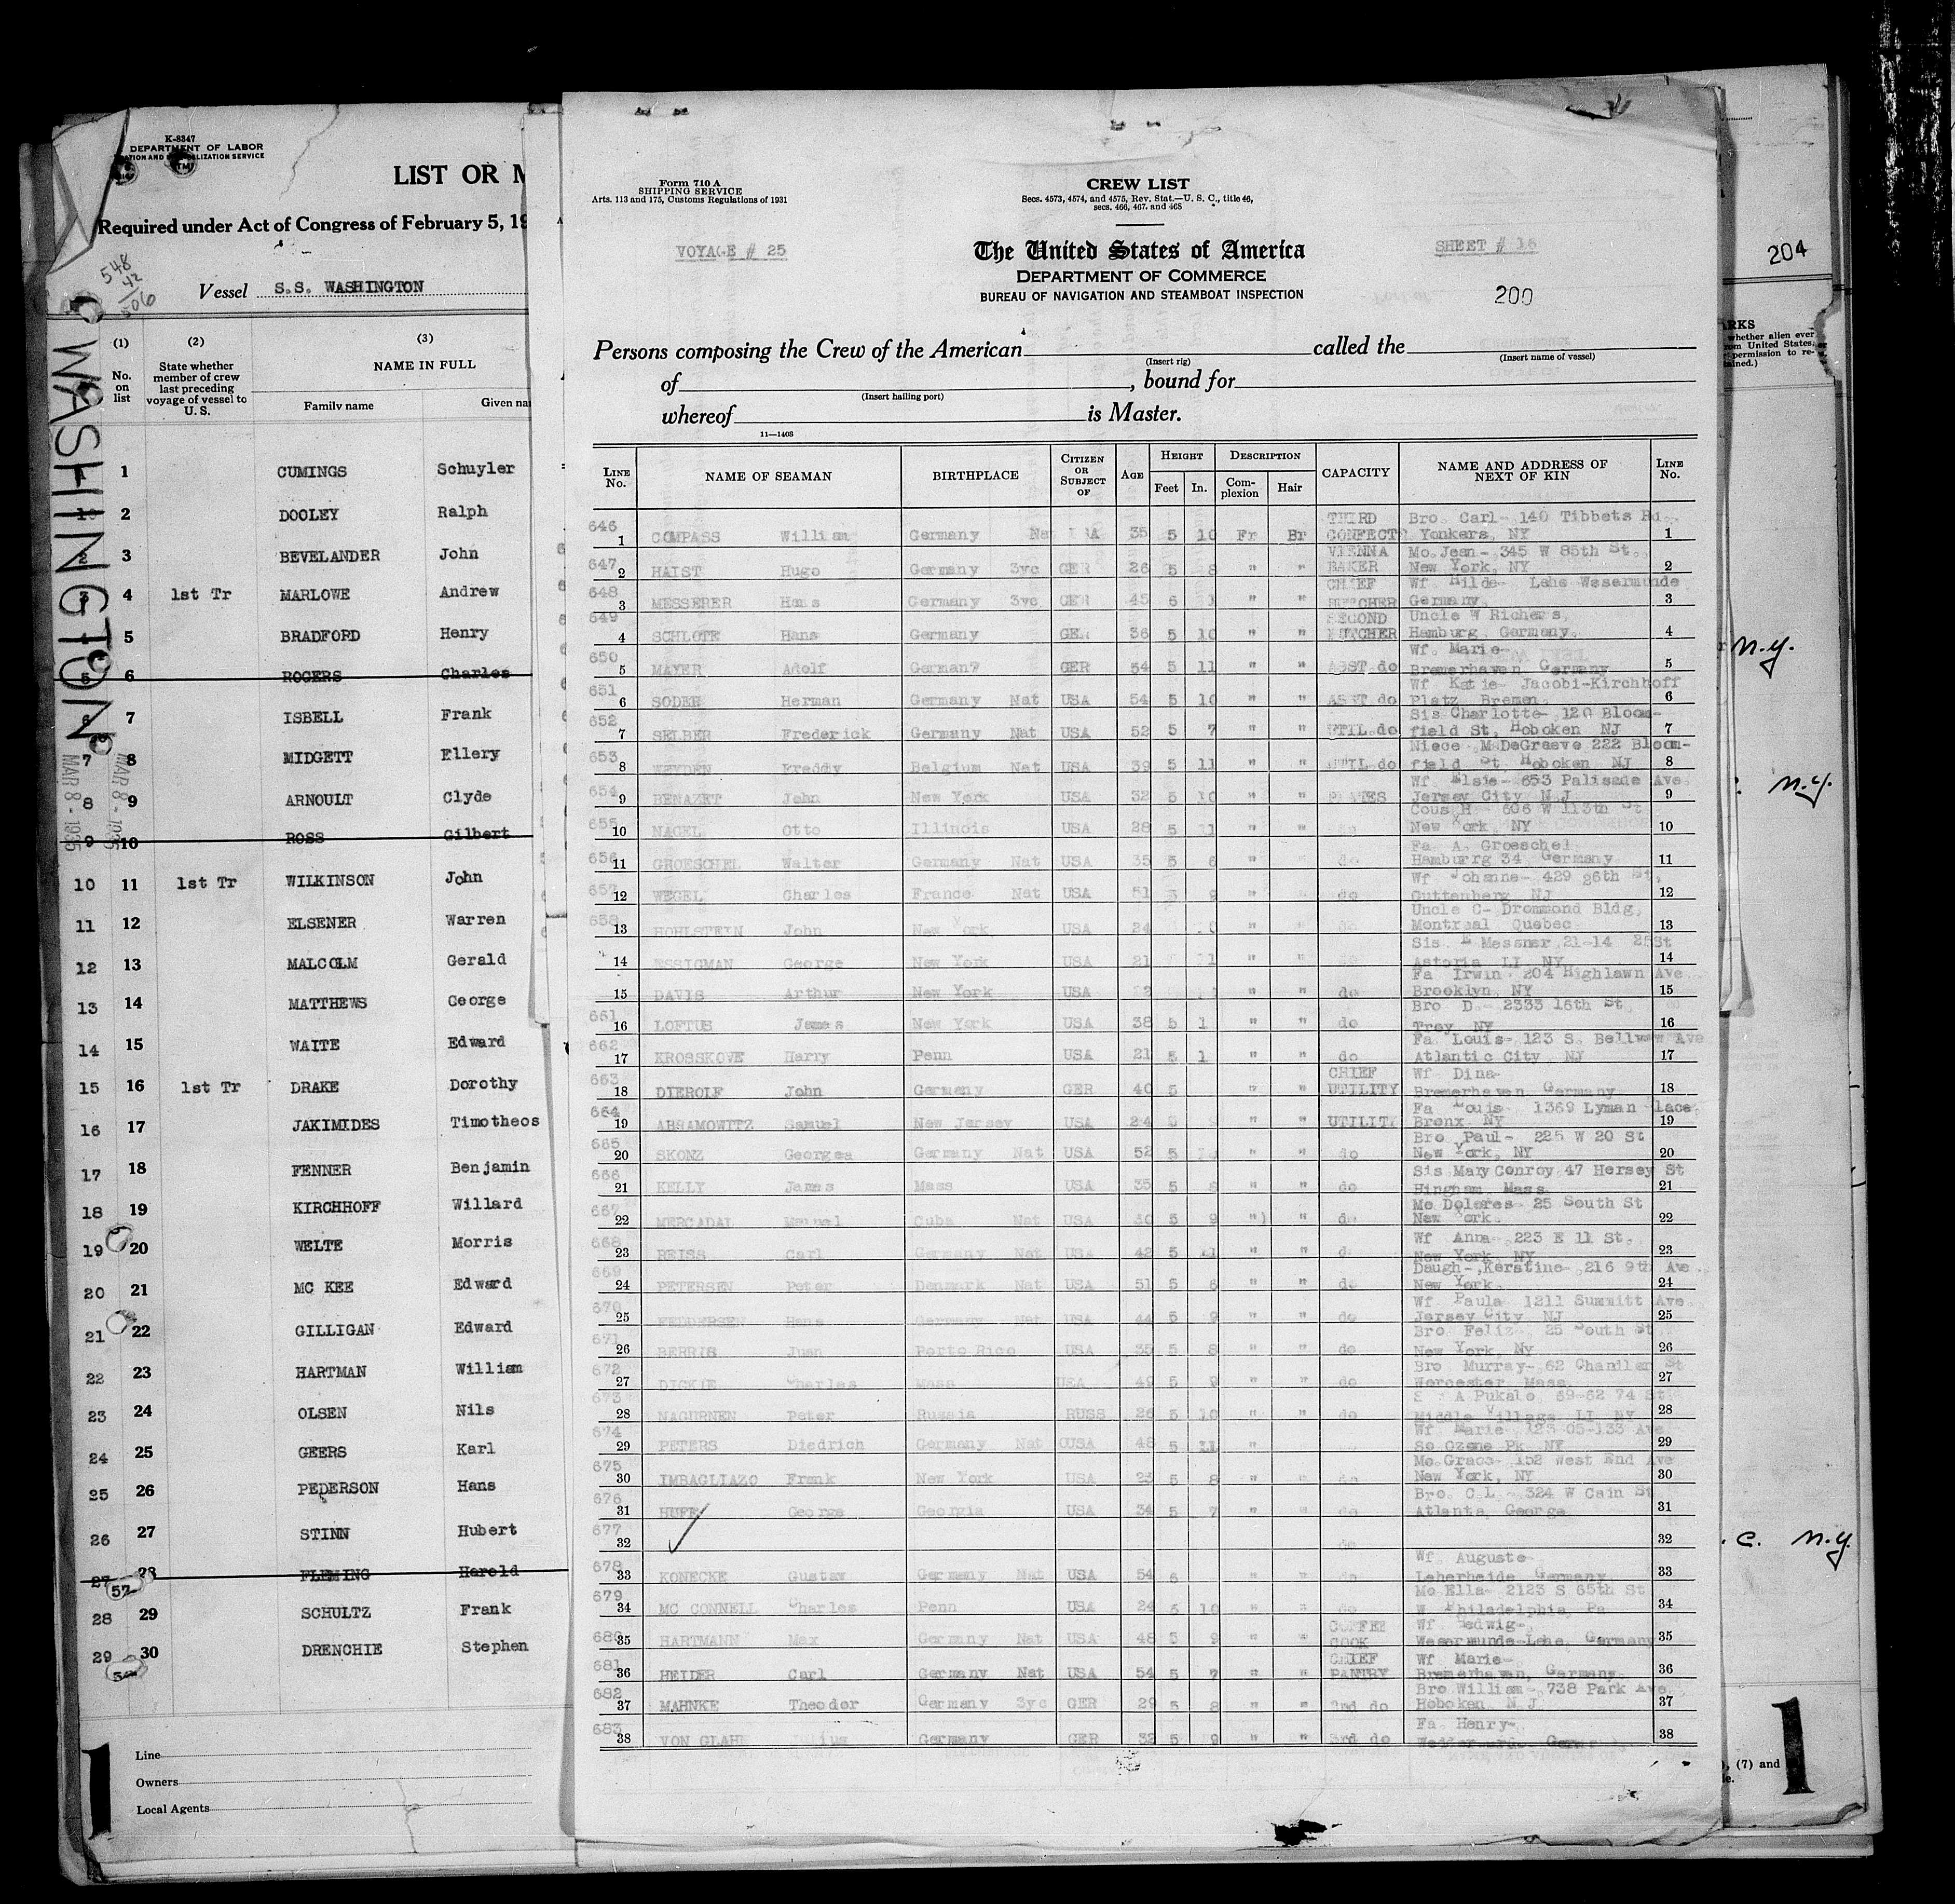 K-8347
DEPARTMENT OF LABOR
LIST OR M
Required under Act of Congress of February 5, 19
548
42
506
Vessel S.S. WASHINGTON
WASHINGTON
MAR 8 - 1935
MAR 8 - 1935
(1) (2) (3)
No. on list
State whether member of crew last preceding voyage of vessel to U. S.
NAME IN FULL
Family name Given nam
1 CUMINGS Schuyler
2 DOOLEY Ralph
2 3 BEVELANDER John
3 4 1st Tr MARLOWE Andrew
4 5 BRADFORD Henry
5 6 ROGERS Charles
6 7 ISBELL Frank
7 8 MIDGETT Ellery
8 9 ARNOULT Clyde
9 10 ROSS Gilbert
10 11 1st Tr WILKINSON John
11 12 ELSENER Warren
12 13 MALCOLM Gerald
13 14 MATTHEWS George
14 15 WAITE Edward
15 16 1st Tr DRAKE Dorothy
16 17 JAKIMIDES Timotheos
17 18 FENNER Benjamin
18 19 KIRCHHOFF Willard
19 20 WELTE Morris
20 21 MC KEE Edward
21 22 GILLIGAN Edward
22 23 HARTMAN William
23 24 OLSEN Nils
24 25 GEERS Karl
25 26 PEDERSON Hans
26 27 STINN Hubert
27 28 FLEMING Harold
28 29 SCHULTZ Frank
29 30 DRENCHIE Stephen
Line
Owners
Local Agents
1
Form 710 A
SHIPPING SERVICE
Arts. 113 and 175, Customs Regulations of 1931
CREW LIST
Secs. 4573, 4574, and 4575, Rev. Stat.—U. S. C., title 46,
secs. 466, 467, and 468
VOYAGE # 25
The United States of America
SHEET # 16
DEPARTMENT OF COMMERCE
BUREAU OF NAVIGATION AND STEAMBOAT INSPECTION
200
Persons composing the Crew of the American called the
(Insert rig) (Insert name of vessel)
of , bound for
(Insert hailing port)
whereof is Master.
11—1408
LINE No. NAME OF SEAMAN BIRTHPLACE CITIZEN OR SUBJECT OF AGE HEIGHT DESCRIPTION CAPACITY NAME AND ADDRESS OF NEXT OF KIN LINE No.
Feet In. Complexion Hair
646 THIRD Bro. Carl- 140 Tibbets Rd.
1 COMPASS William Germany Nat 35 5 10 Fr Br CONFECT Yonkers, NY 1
647 VIENNA Mo. Jean- 345 W 85th St.
2 HAIST Hugo Germany 3yc GER 26 5 8 " " BAKER New York, NY 2
648 CHIEF Wf Hilde- Lehe Wesermunde
3 MESSERER Hans Germany 3yc GER 45 6 " " BUTCHER Germany 3
649 SECOND Uncle W Richers,
4 SCHLOTE Hans Germany GER 36 5 10 " " BUTCHER Hamburg Germany. 4
650 Wf. Marie-
5 MAYER Adolf German? GER 54 5 11 " " ASST do Bremerhaven Germany 5
651 Wf Katie- Jacobi-Kirchhoff
6 SODER Herman Germany Nat USA 54 5 10 " " ASST do Platz Bremen. 6
652 Sis Charlotte- 120 Bloom-
7 SELBER Frederick Germany Nat USA 52 5 7 " " UTIL do field St, Hoboken NJ 7
653 Niece M DeGraeve 222 Bloom-
8 WEYDEN Freddy Belgium Nat USA 39 5 11 " " UTIL do field St Hoboken NJ 8
654 Wf Elsie- 653 Palisade Ave
9 BENAZET John New York USA 32 5 10 " " Jersey City N J 9
655 Cous H- 606 W 113th St
10 NAGEL Otto Illinois USA 28 5 11 " " do New York, NY 10
656 Fa A. Groeschel
11 GROESCHEL Walter Germany Nat USA 35 5 6 " " do Hamburrg 34 Germany 11
657 Wf Johanne- 429 26th St,
12 WEGEL Charles France Nat USA 51 9 " " do Guttenberg NJ 12
658 Uncle C- Drommond Bldg,
13 HOHLSTEIN John New York USA 24 " " Montreal Quebec 13
Sis. E Messner 21-14 25St
14 ESSIGMAN George New York USA 21 " " Astoria LI NY 14
Fa Irwin 204 Highlawn Ave
15 DAVIS Arthur New York USA " " do Brooklyn NY 15
661 Bro D- 2333 16th St
16 LOFTUS James New York USA 38 5 1 " " do Troy NY 16
662 Fa Louis- 123 S. Bellvew Ave
17 KROSSKOVE Harry Penn USA 21 5 1 " " do Atlantic City NJ 17
663 CHIEF Wf Dina-
18 DIEROLF John Germany GER 40 5 " " UTILITY Bremerhaven Germany 18
664 Fa Louis- 1369 Lyman Place
19 ABSAMOWITZ Samuel New Jersey USA 24 " " UTILITY Bronx NY 19
665 Bro Paul- 225 W 20 St
20 SKONZ Georgea Germany Nat USA 52 5 " " do New York, NY 20
666 Sis Mary Conroy 47 Hersey St
21 KELLY James Mass USA 35 5 8 " " do Hingham Mass 21
667 Mo Dolores- 25 South St
22 MERCADAL Manuel Cuba Nat USA 30 5 9 " " do New York. 22
668 Wf Anna- 223 E 11 St.
23 REISS Carl Germany Nat USA 42 5 " " New York, NY 23
669 Daugh-,Kerstine- 216 9th Ave
24 PETERSEN Peter Denmark Nat USA 51 5 6 " " do New York. 24
670 Wf Paula 1211 Summitt Ave
25 FEDDERSEN Hans Germany Nat USA 44 5 9 " " do Jersey City NJ 25
671 Bro. Feliz- 25 South St
26 BERRIS Juan Porto Rico USA 35 5 8 " " do New York, NY 26
672 Bro Murray- 62 Chandler St
27 DICKIE Charles Mass USA 49 5 9 " " do Worcester Mass. 27
673 A Pukalo, 69-62 74 St.
28 NAGURNEN Peter Russia RUSS 26 5 10 " " do Middle Village LI NY 28
674 Wf Marie- 123-05-133 Ave
29 PETERS Diedrich Germany Nat USA 48 5 11 " So Ozone Pk NY 29
675 Mo Grace- 152 West End Ave
30 IMBAGLIAZO Frank New York USA 23 5 8 " " do New York, NY 30
676 Bro. C L - 324 W Cain St
31 HUFF George Georgia USA 34 5 7 " " do Atlanta, George 31
677
32 do 32
678 Wf Auguste-
33 KONECKE Gustav Germany Nat USA 54 6 " " Leherheide Germany 33
679 Mo Ella- 2123 S 65th St
34 MC CONNELL Charles Penn USA 24 5 10 " " W Philadelphia Pa 34
680 COFFEE Wf Hedwig-
35 HARTMANN Max Germany Nat USA 48 5 9 " " COOK Wesermunde-Lehe, Germany 35
681 CHIEF Wf Marie-
36 HEIDER Carl Germany Nat USA 54 5 7 " " PANTRY Bremerhaven, Germany 36
682 Bro William- 738 Park Ave
37 MAHNKE Theodor Germany 3yc GER 29 5 8 " " 2nd do Hoboken N J 37
683 Fa Henry-
38 VON GLAHN Julius Germany GER 32 5 9 " " 3rd do 38
204
ARKS
whether alien ever
om United States,
permission to re-
tained.)
N.Y.
N.Y.
. C. N.Y.
, (7) and
le.
1